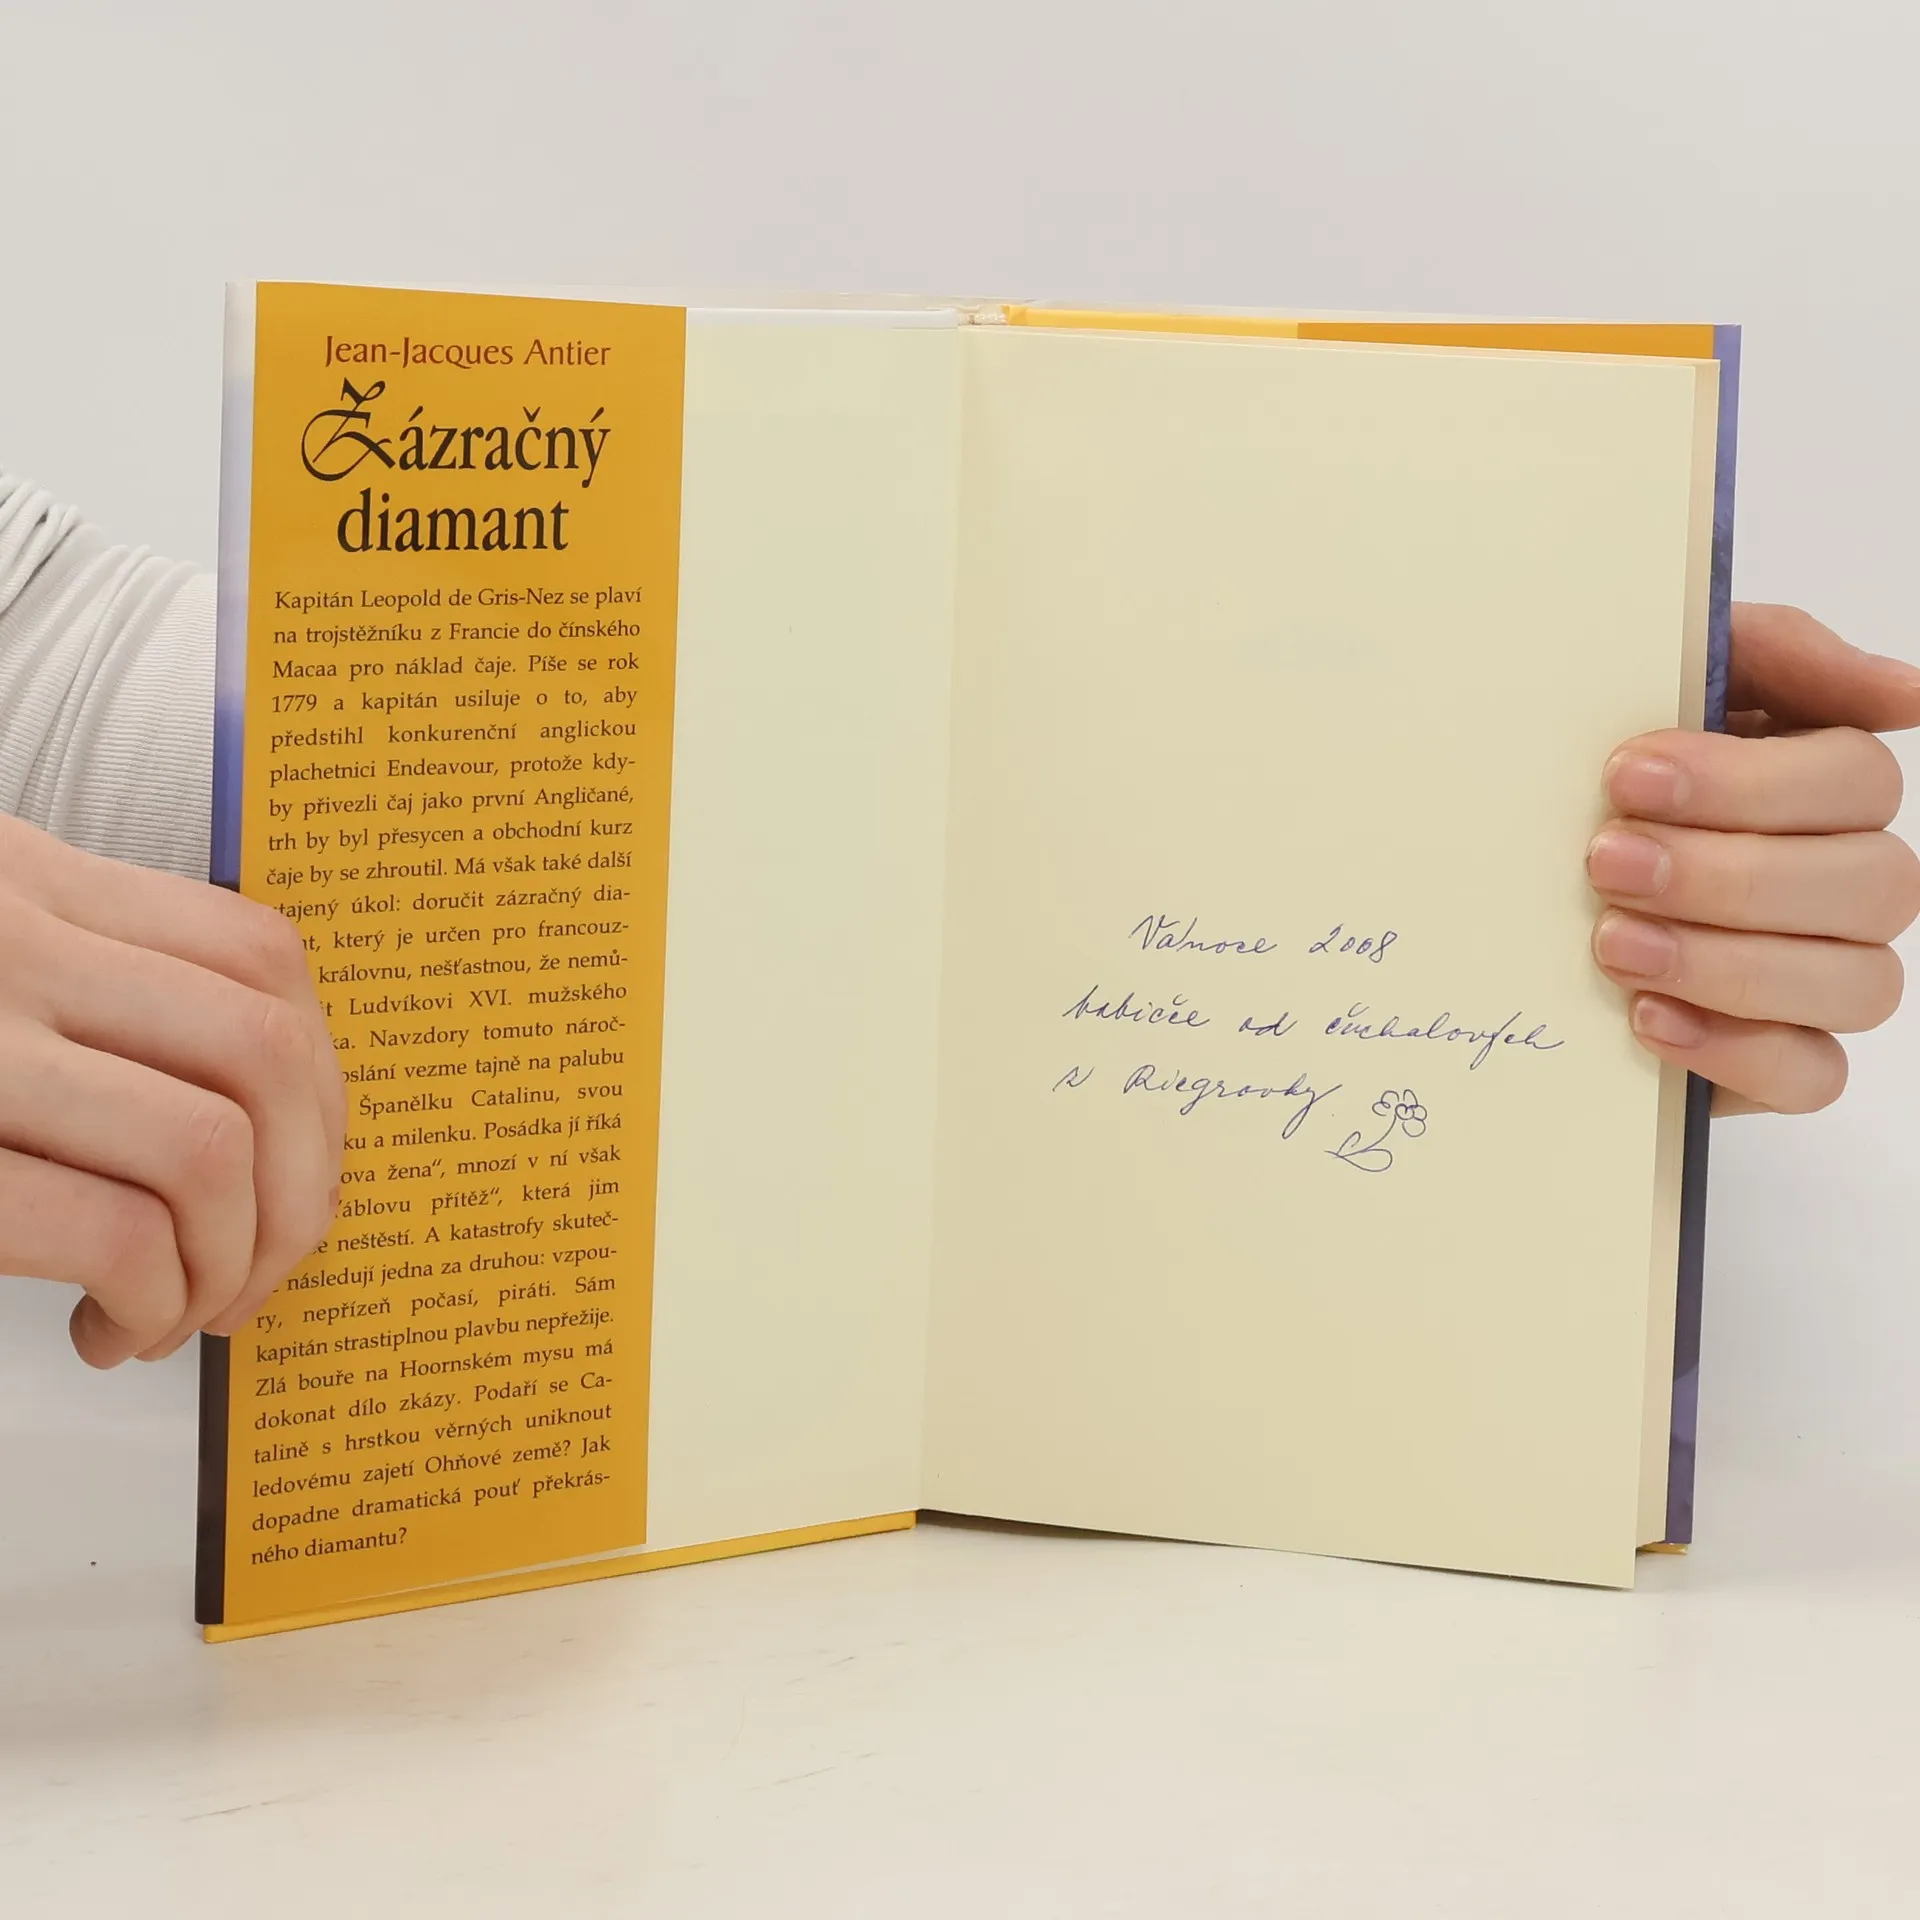 Jean-Jacques Antier
Zázračný
diamant
Kapitán Leopold de Gris-Nez se plaví
na trojstěžníku z Francie do čínského
Macaa pro náklad čaje. Píše se rok
1779 a kapitán usiluje o to, aby
předstihl konkurenční anglickou
plachetnici Endeavour, protože kdy-
by přivezli čaj jako první Angličané,
trh by byl přesycen a obchodní kurz
čaje by se zhroutil. Má však také další
úkol: doručit zázračný dia-
který je určen pro francouz-
královnu, nešťastnou, že nemů-
Ludvíkovi XVI. mužského
Navzdory tomuto nároč-
vezme tajně na palubu
Španělku Catalinu, svou
a milenku. Posádka jí říká
žena“, mnozí v ní však
přítěž“, která jim
neštěstí. A katastrofy skuteč-
následují jedna za druhou: vzpou-
ry, nepřízeň počasí, piráti. Sám
kapitán strastiplnou plavbu nepřežije.
Zlá bouře na Hoornském mysu má
dokonat dílo zkázy. Podaří se Ca-
talině s hrstkou věrných uniknout
ledovému zajetí Ohňové země? Jak
dopadne dramatická pouť překrás-
ného diamantu?
Vánoce 2008
babičce od
z Riegrovky